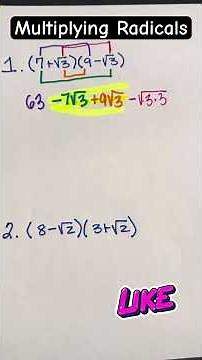 Multiplying Radicals
1. (7+√3)(9-√3)
63 -7√3 +9√3 -√3·3
2. (8-√2)(3+√2)
LIKE